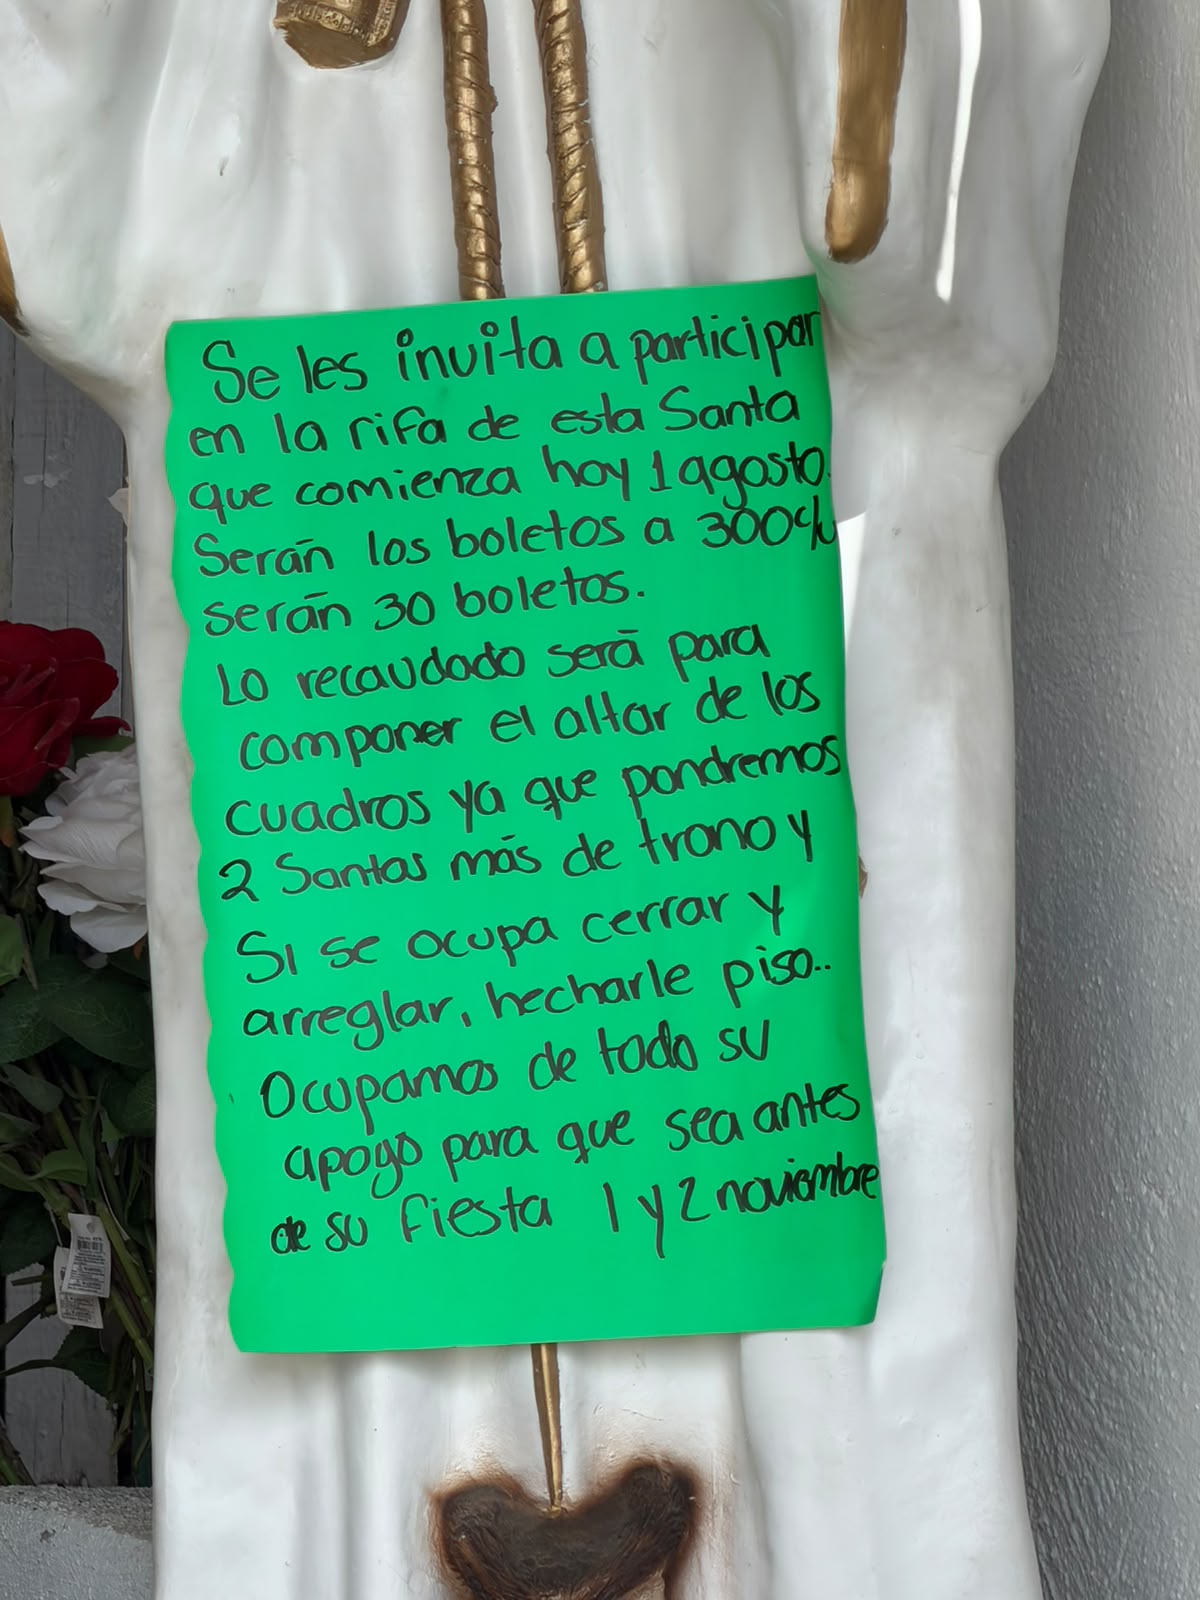 Se les invita a participar
en la rifa de esta Santa
que comienza hoy 1 agosto.
Serán los boletos a 300 c/u
serán 30 boletos.
Lo recaudado será para
componer el altar de los
cuadros ya que pondremos
2 Santas más de trono y
Si se ocupa cerrar y
arreglar, hecharle piso..
Ocupamos de todo su
apoyo para que sea antes
de su fiesta 1 y 2 noviembre